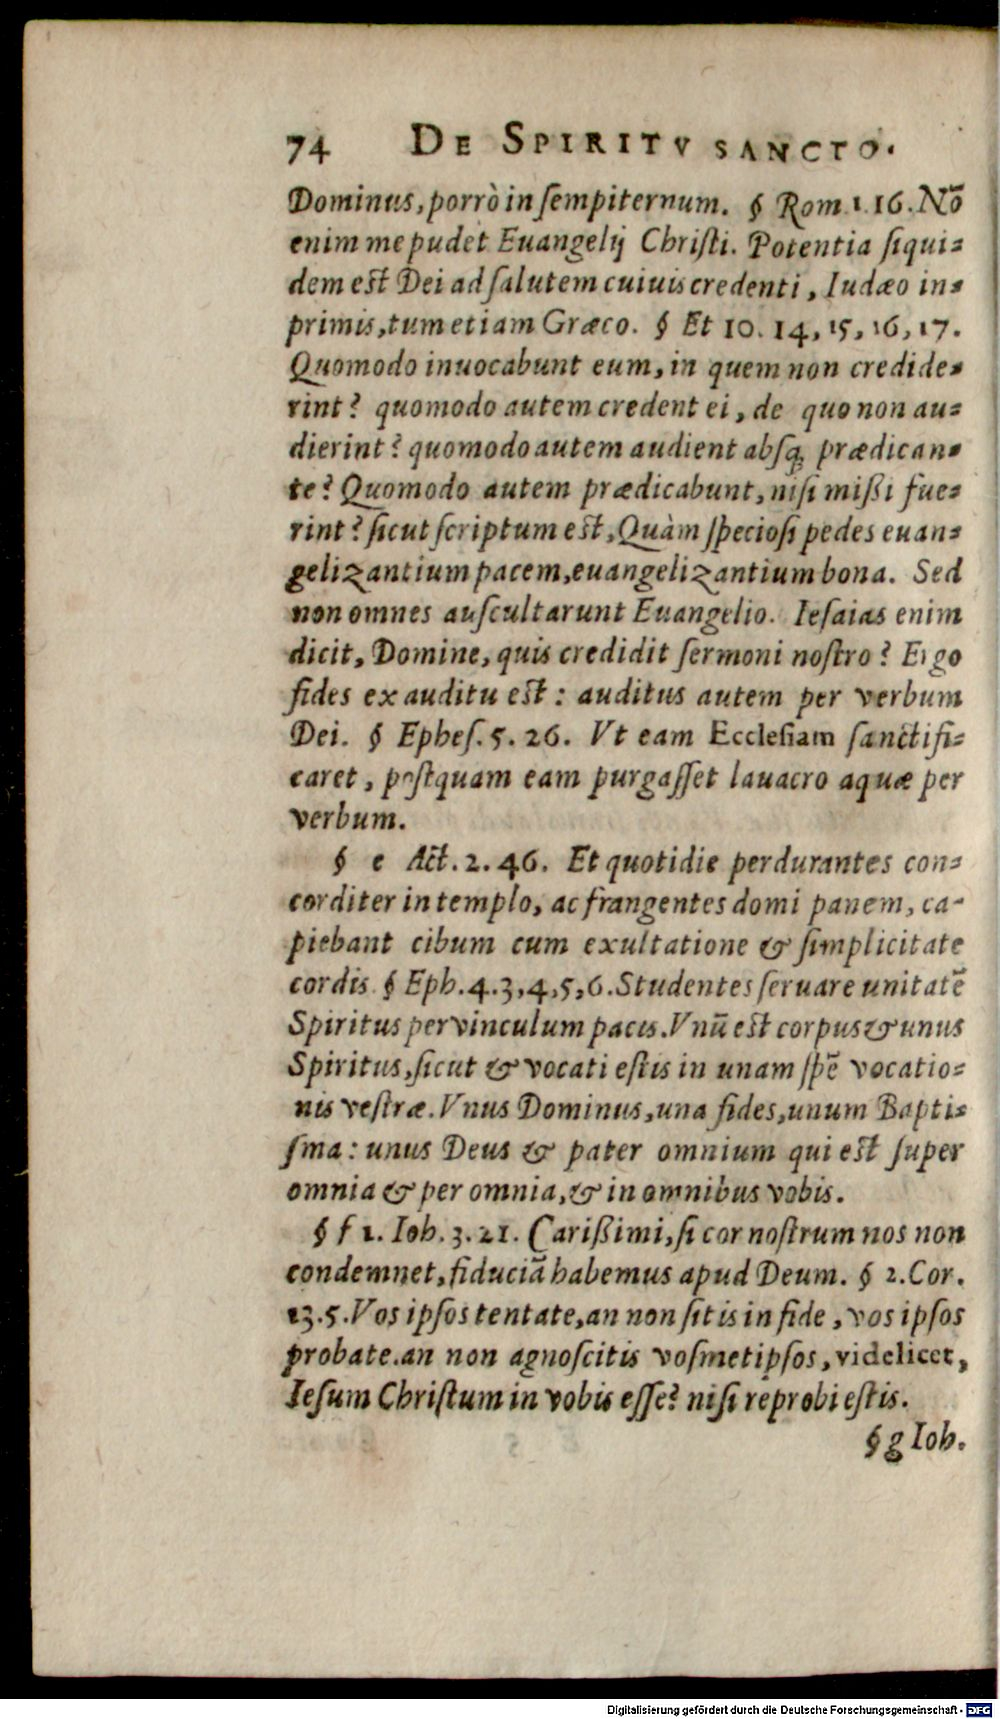 74 DE SPIRITV SANCTO.
Dominus, porrò in ſempiternum. § Rom. 1. 16. Nõ
enim me pudet Euangelij Chriſti. Potentia ſiqui-
dem eſt Dei ad ſalutem cuiuis credenti, Iudæo in-
primis, tum etiam Græco. § Et 10. 14, 15, 16, 17.
Quomodo inuocabunt eum, in quem non credide-
rint? quomodo autem credent ei, de quo non au-
dierint? quomodo autem audient abſq; prædican-
te? Quomodo autem prædicabunt, niſi mißi fue-
rint? ſicut ſcriptum eſt, Quàm ſpecioſi pedes euan-
gelizantium pacem, euangelizantium bona. Sed
non omnes auſcultarunt Euangelio. Ieſaias enim
dicit, Domine, quis credidit ſermoni noſtro? Ergo
fides ex auditu eſt: auditus autem per verbum
Dei. § Epheſ. 5. 26. Vt eam Eccleſiam ſanctifi-
caret, poſtquam eam purgaſſet lauacro aquæ per
verbum.
§ e Act. 2. 46. Et quotidie perdurantes con-
corditer in templo, ac frangentes domi panem, ca-
piebant cibum cum exultatione & ſimplicitate
cordis. § Eph. 4. 3, 4, 5, 6. Studentes ſeruare unitatẽ
Spiritus per vinculum pacis. Vnũ eſt corpus & unus
Spiritus, ſicut & vocati eſtis in unam ſpẽ vocatio-
nis veſtræ. Vnus Dominus, una fides, unum Bapti-
ſma: unus Deus & pater omnium qui eſt ſuper
omnia & per omnia, & in omnibus vobis.
§ f 1. Ioh. 3. 21. Carißimi, ſi cor noſtrum nos non
condemnet, fiduciã habemus apud Deum. § 2. Cor.
13. 5. Vos ipſos tentate, an non ſitis in fide, vos ipſos
probate. an non agnoſcitis voſmetipſos, videlicet,
Ieſum Chriſtum in vobis eſſe? niſi reprobi eſtis.
§ g Ioh.
Digitalisierung gefördert durch die Deutsche Forschungsgemeinschaft - DFG